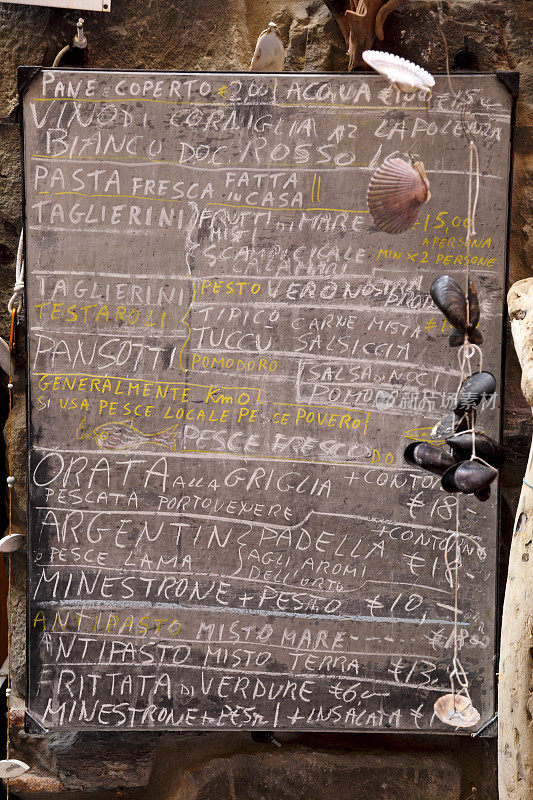 PANE COPERTO €2,00 ACQUA €1,00 €1,5
VINO DI CORNIGLIA A2 LAPOLENZA
BIANCO DOC ROSSO
PASTA FRESCA FATTA IN CASA
TAGLIERINI FRUTTI DI MARE €15,00
MISTI A PERSONA
SCAMPI CICALE MIN X 2 PERSONE
CALAMARI
TAGLIERINI PESTO VERO NOSTRA
TESTAROLI TIPICO CARNE MISTA
TUCCU SALSICCIA
PANSOTTI POMODORO SALSA DI NOCI
GENERALMENTE KM 0
SI USA PESCE LOCALE PESCE POVERO!
PESCE FRESCO
ORATA ALLA GRIGLIA + CONTORNO
PESCATA PORTOVENERE €18-
ARGENTIN PADELLA + CONTORNO
PESCE LAMA AGLI AROMI €18-
DELL'ORTO
MINESTRONE + PESTO €10,-
ANTIPASTO MISTO MARE
ANTIPASTO MISTO TERRA €13,
FRITTATA DI VERDURE €6
MINESTRONE + PESTO + INSALATA